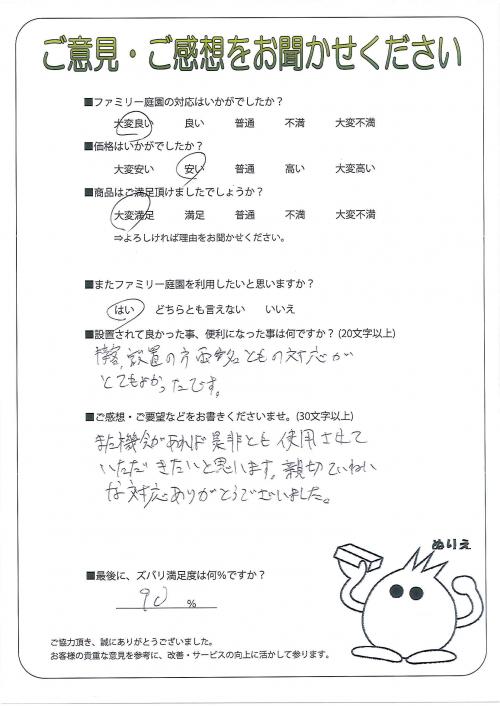 ご意見・ご感想をお聞かせください
■ファミリー庭園の対応はいかがでしたか?
大変良い 良い 普通 不満 大変不満
■価格はいかがでしたか?
大変安い 安い 普通 高い 大変高い
■商品はご満足頂けましたでしょうか?
大変満足 満足 普通 不満 大変不満
⇒よろしければ理由をお聞かせください。
■またファミリー庭園を利用したいと思いますか?
はい どちらとも言えない いいえ
■設置されて良かった事、便利になった事は何ですか? (20文字以上)
設置の方 両名ともの対応が
とてもよかったです。
■ご感想・ご要望などをお書きくださいませ。(30文字以上)
また機会があれば是非とも使用させて
いただきたいと思います。親切ていねい
な対応ありがとうございました。
ぬりえ
■最後に、ズバリ満足度は何%ですか?
90 %
ご協力頂き、誠にありがとうございました。
お客様の貴重な意見を参考に、改善・サービスの向上に活かして参ります。